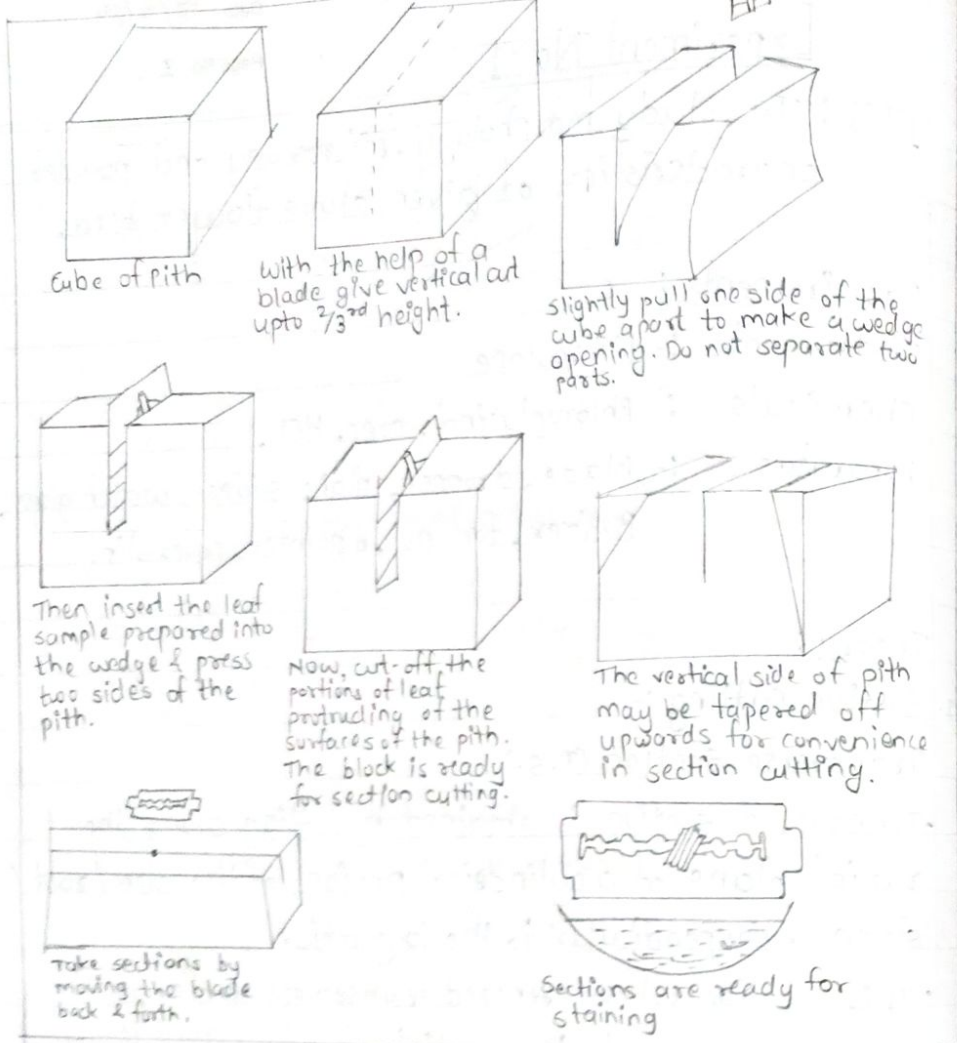 Cube of Pith
With the help of a
blade give vertical cut
upto 2/3rd height.
Slightly pull one side of the
cube apart to make a wedge
opening. Do not separate two
parts.
Then insert the leaf
sample prepared into
the wedge & press
two sides of the
pith.
Now, cut-off the
portions of leaf
protruding of the
surfaces of the pith.
The block is ready
for section cutting.
The vertical side of pith
may be tapered off
upwords for convenience
in section cutting.
Take sections by
moving the blade
back & forth.
Sections are ready for
staining